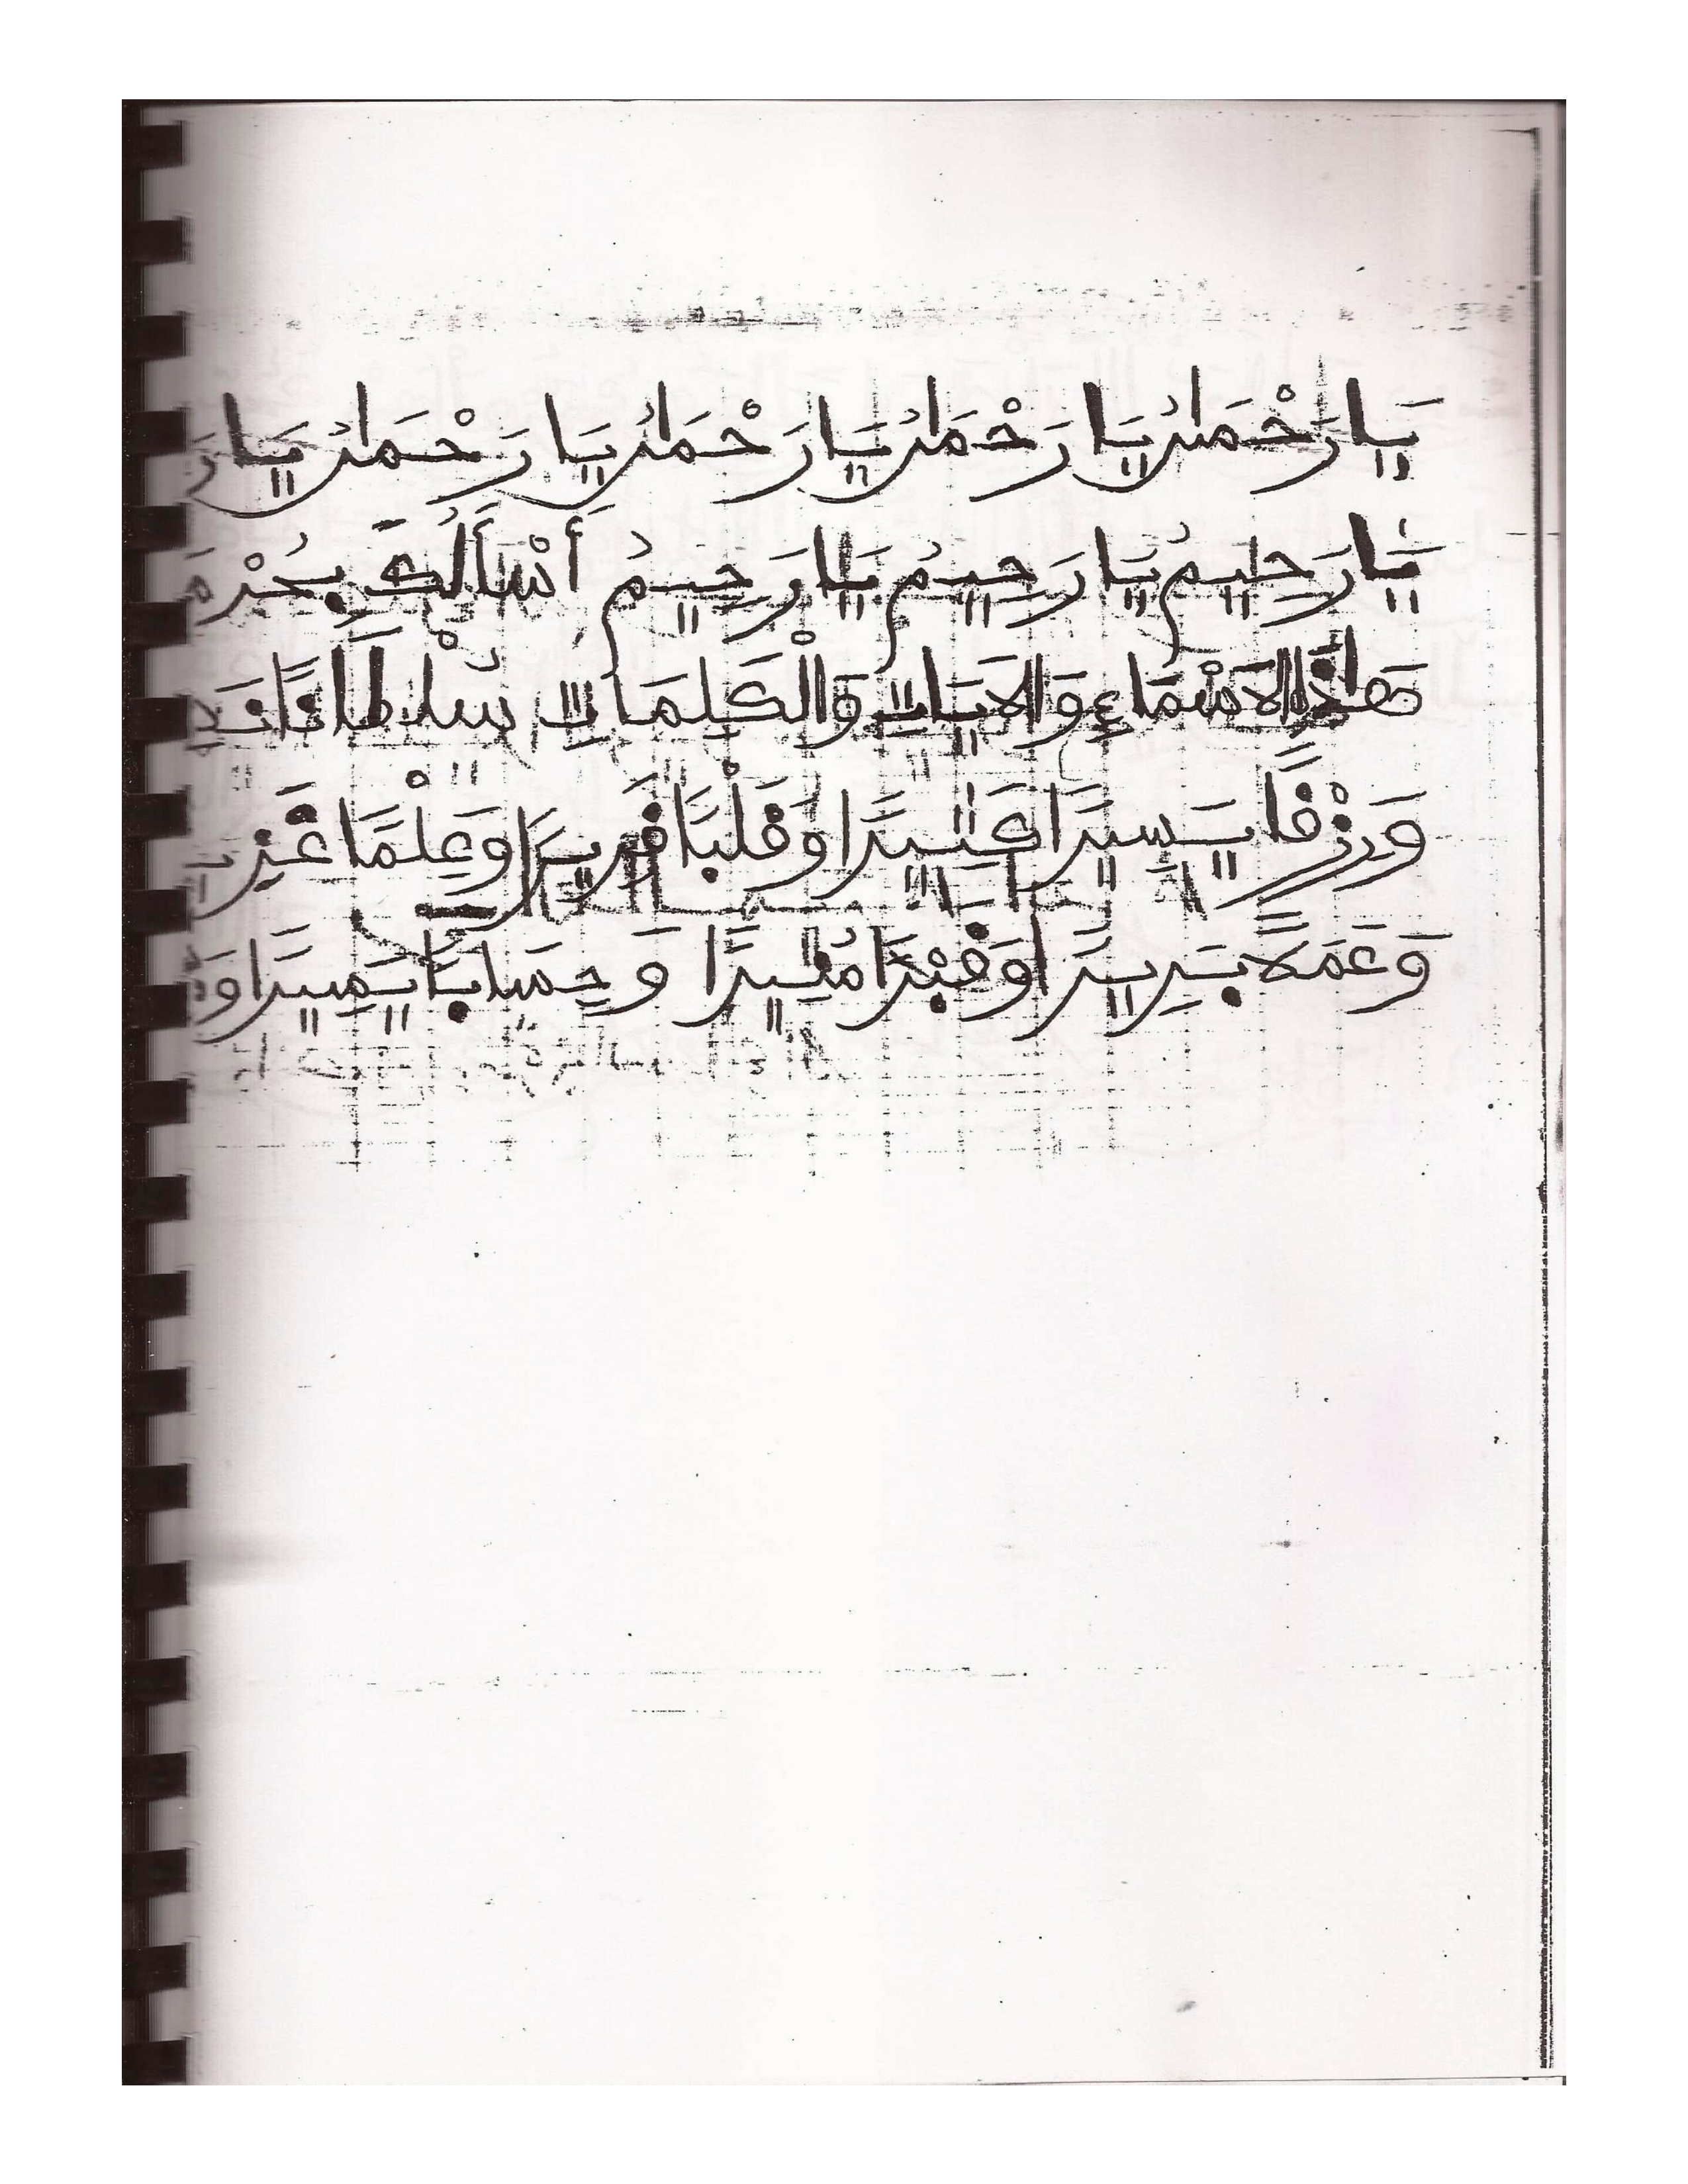 يَا رَحْمَنُ يَا رَحْمَنُ يَا رَحْمَنُ يَا رَحْمَنُ يَا رَ
يَا رَحِيمُ يَا رَحِيمُ يَا رَحِيمُ أَسْأَلُكَ بِحُرْمَ
هَاذِهِ الاَسْمَاءِ وَالاَيَاتِ وَالْكَلِمَاتِ سُلْطَانًا نَصِ
وَرِزْقًا يَسِيرًا كَثِيرًا وَقَلْبًا قَرِيرًا وَعِلْمًا غَزِي
وَعَمَلاً بَرِيرًا وَقَبْرًا مُنِيرًا وَحِسَابًا يَسِيرًا وَ